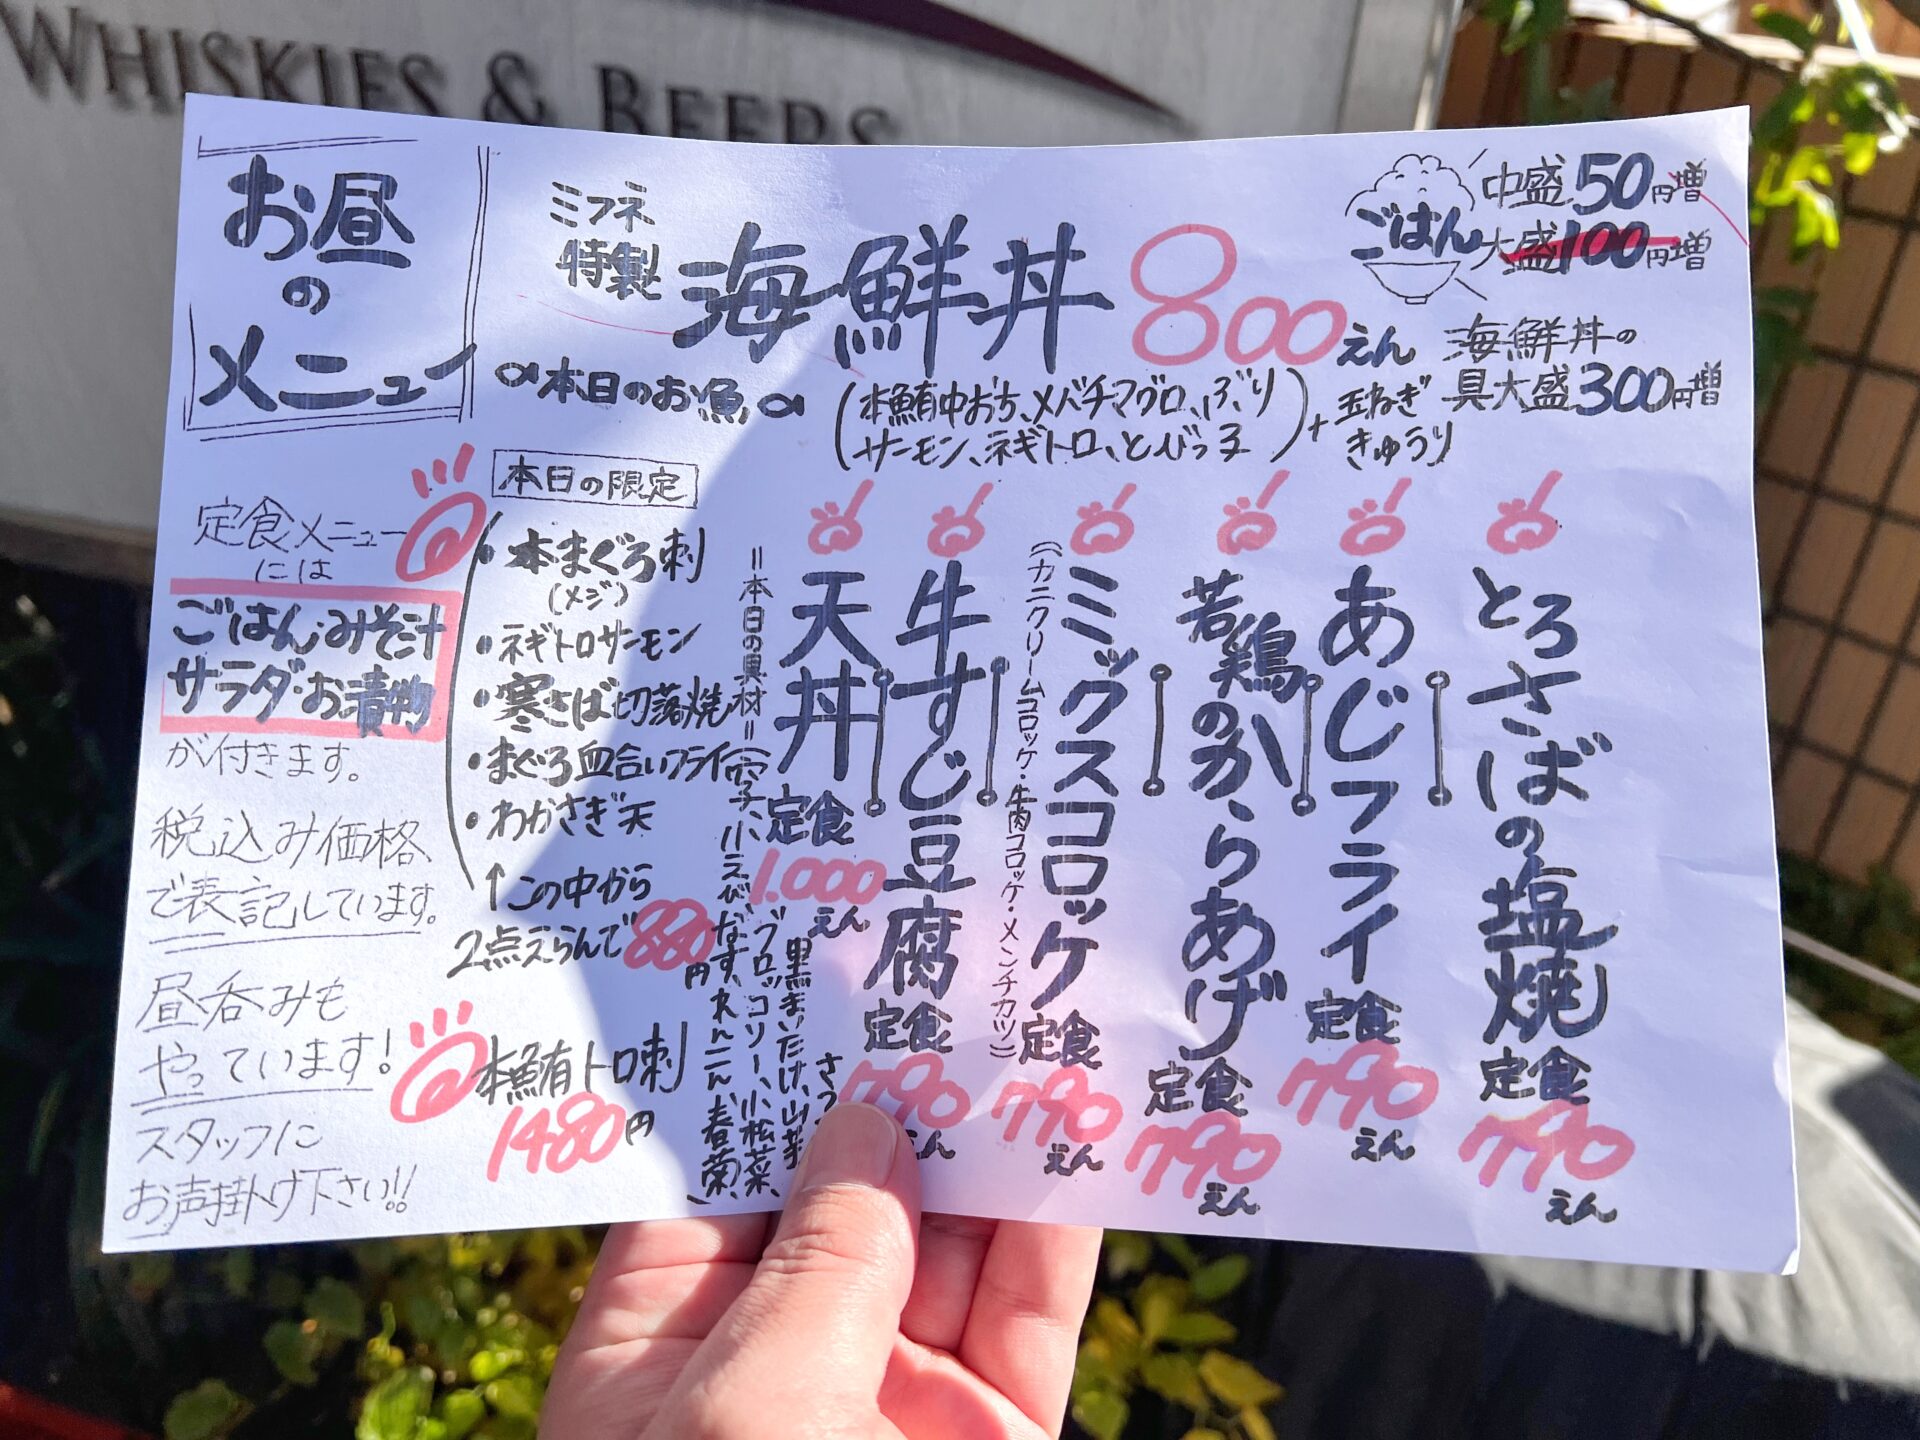 WHISKIES & BEERS
お昼
の
メニュー
ミフネ
特製
海鮮丼 800えん
∝本日のお魚∝
(本鮪中おち、メバチマグロ、ぶり
サーモン、ネギトロ、とびっ子)
+玉ねぎ
きゅうり
ごはん
中盛50円増
大盛100円増
海鮮丼の
具大盛300円増
定食メニュー
には
ごはん・みそ汁
サラダ・お漬物
が付きます。
税込み価格
で表記しています。
昼呑みも
やっています!
スタッフに
お声掛け下さい!!
本日の限定
・本まぐろ刺
(メジ)
・ネギトロサーモン
・寒さば切落焼
・まぐろ血合いフライ
・わかさぎ天
↑この中から
2点えらんで880円
本鮪トロ刺
1480円
天丼定食
1.000えん
=本日の具材=
小えび、なす、れんこん、春菊、
ブロッコリー、小松菜、
黒まいたけ、山芋
牛すじ豆腐定食
790えん
ミックスコロッケ定食
(カニクリームコロッケ・牛肉コロッケ・メンチカツ)
790えん
若鶏のからあげ定食
790えん
あじフライ定食
790えん
とろさばの塩焼定食
790えん